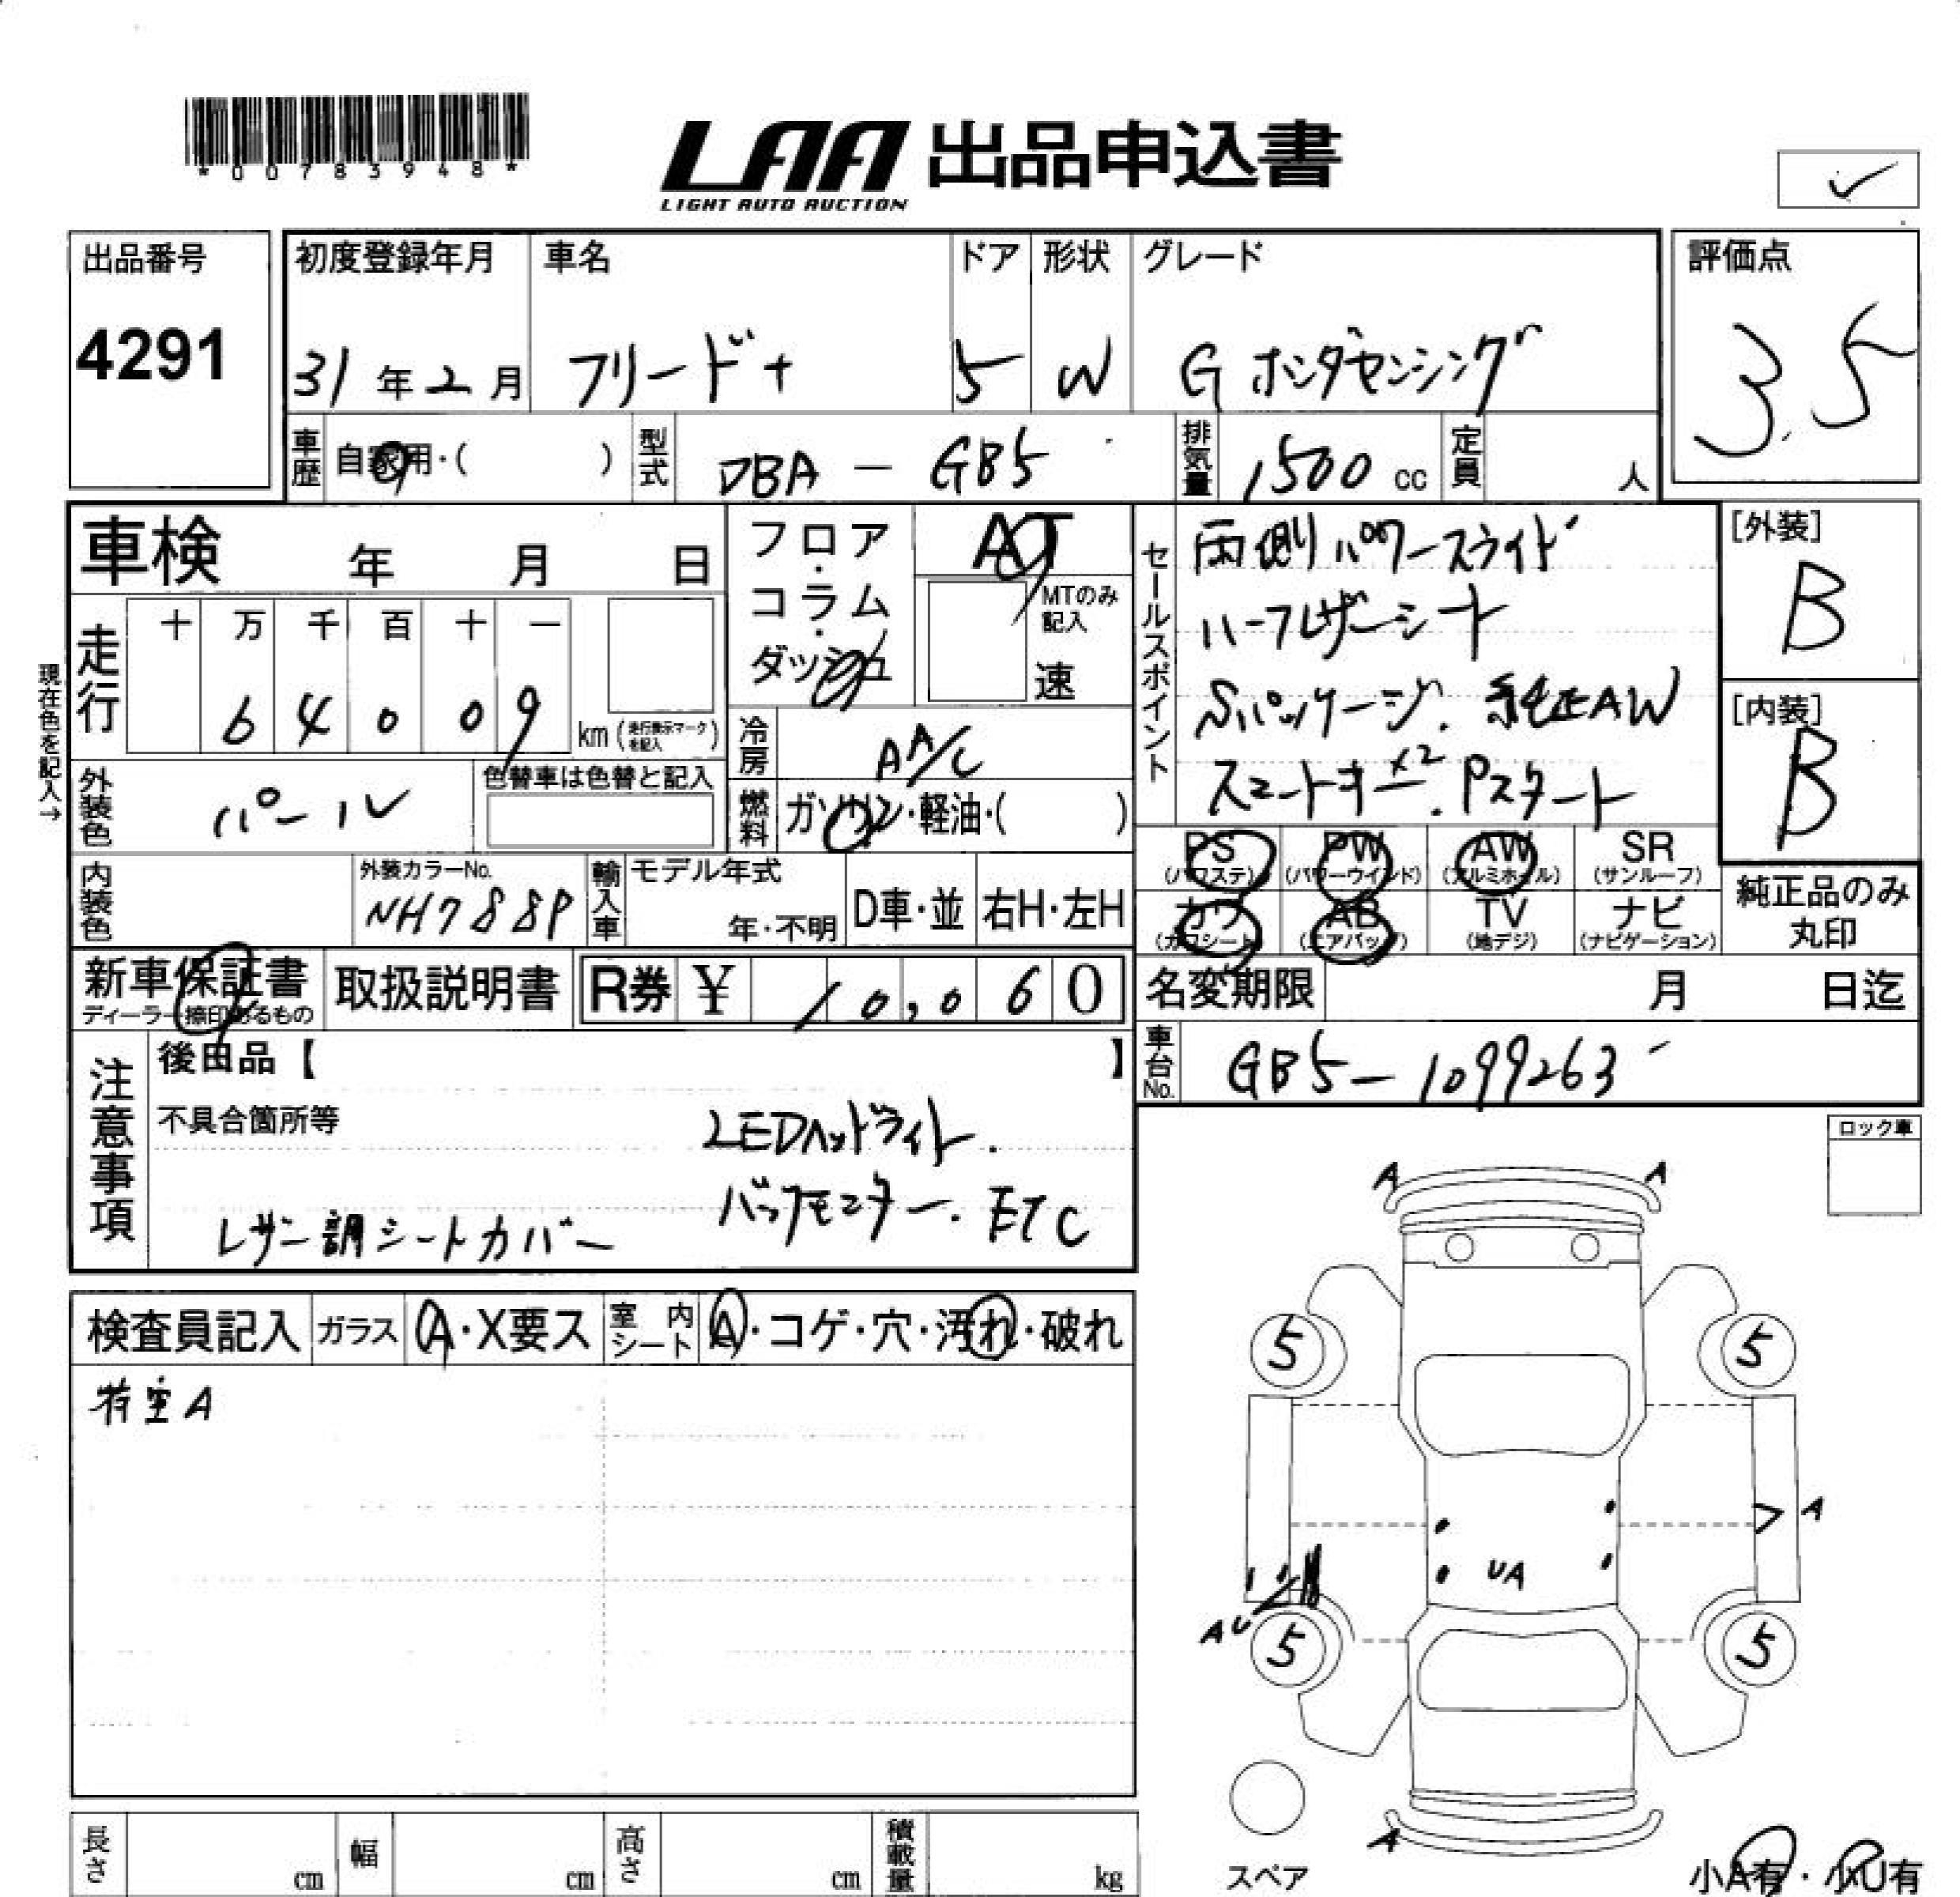 *00783948*
LAA 出品申込書
LIGHT AUTO AUCTION
✓
出品番号
4291
初度登録年月
31年2月
車名
フリード+
ドア
5
形状
W
グレード
G ホンダセンシング
評価点
3.5
車歴
自家用・( )
型式
DBA - GB5
排気量
1500 cc
定員
人
車検 年 月 日
フロア・コラム・ダッシュ
AT
MTのみ記入
速
走行
十 万 千 百 十 一
6 4 0 0 9
km (走行表示マークを記入)
現在色を記入→
冷房
AA/C
燃料
ガソリン・軽油・( )
外装色
パール
色替車は色替と記入
内装色
外装カラーNo.
NH788P
輸入車
モデル年式
年・不明
D車・並
右H・左H
セールスポイント
両側パワースライド
ハーフレザーシート
Sパッケージ. 純正AW
スマートキー×2. Pスタート
[外装]
B
[内装]
B
PS (パワステ)
PW (パワーウインド)
AW (アルミホイル)
SR (サンルーフ)
カワ (カワシート)
AB (エアバッグ)
TV (地デジ)
ナビ (ナビゲーション)
純正品のみ丸印
新車保証書
ディーラー捺印あるもの
取扱説明書
R券 ¥ 10,060
名変期限 月 日迄
車台No.
GB5-1099263
注意事項
後日品【 】
不具合箇所等
LEDヘッドライト.
バックモニター. ETC
レザー調シートカバー
ロック車
検査員記入
ガラス
A・X要ス
室内シート
A・コゲ・穴・汚れ・破れ
荷室A
A A
5 5
A
UA
AU
5 5
A
スペア
小A有・小U有
長さ cm
幅 cm
高さ cm
積載量 kg